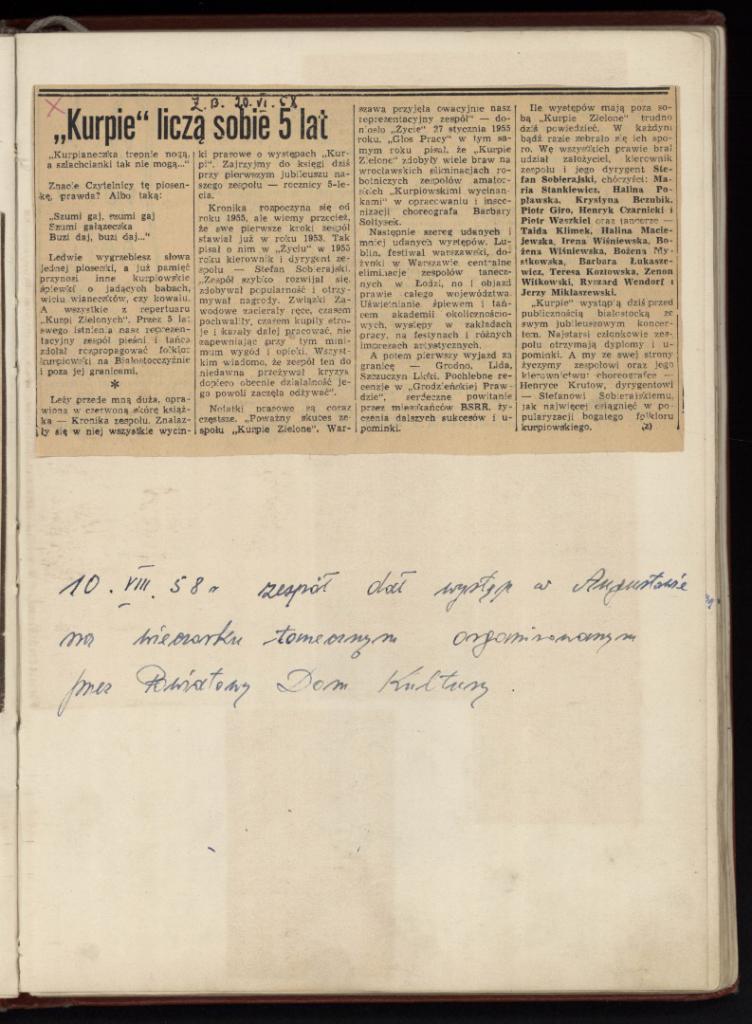 Ż. B. 20.VI.58
„Kurpie“ liczą sobie 5 lat
„Kurpianeczka trepnie nogą,
a szlachcianki tak nie mogą...“
Znacie Czytelnicy tę piosen-
kę, prawda? Albo taką:
„Szumi gaj, szumi gaj
Szumi gałązeczka
Buzi daj, buzi daj...“
Ledwie wygrzebiesz słowa
jednej piosenki, a już pamięć
przynosi inne kurpiowskie
śpiewki o jadących babach,
wiciu wianeczków, czy kowalu.
A wszystkie z repertuaru
„Kurpi Zielonych“. Przez 5 lat
swego istnienia nasz reprezen-
tacyjny zespół pieśni i tańca
zdołał rozpropagować folklor
kurpiowski na Białostocczyźnie
i poza jej granicami.
*
Leży przede mną duża, opra-
wiona w czerwoną skórę książ-
ka — Kronika zespołu. Znalaz-
ły się w niej wszystkie wycin-
ki prasowe o występach „Kur-
pi“. Zajrzyjmy do księgi dziś
przy pierwszym jubileuszu na-
szego zespołu — rocznicy 5-le-
cia.
Kronika rozpoczyna się od
roku 1955, ale wiemy przecież,
że swe pierwsze kroki zespół
stawiał już w roku 1953. Tak
pisał o nim w „Życiu“ w 1955
roku kierownik i dyrygent ze-
społu — Stefan Sobierajski.
„Zespół szybko rozwijał się,
zdobywał popularność i otrzy-
mywał nagrody. Związki Za-
wodowe zacierały ręce, czasem
pochwaliły, czasem kupiły stro-
je i kazały dalej pracować, nie
zapewniając przy tym mini-
mum wygód i opieki. Wszyst-
kim wiadomo, że zespół ten do
niedawna przeżywał kryzys
dopiero obecnie działalność je-
go powoli zaczęła odżywać“.
Notatki prasowe są coraz
częstsze. „Poważny sukces ze-
społu „Kurpie Zielone“. War-
szawa przyjęła owacyjnie nasz
reprezentacyjny zespół“ — do-
niosło „Życie“ 27 stycznia 1955
roku. „Głos Pracy“ w tym sa-
mym roku pisał, że „Kurpie
Zielone“ zdobyły wiele braw na
wrocławskich eliminacjach ro-
botniczych zespołów amator-
skich „Kurpiowskimi wycinan-
kami“ w opracowaniu i insce-
nizacji choreografa Barbary
Sołtysek.
Następnie szereg udanych i
mniej udanych występów. Lu-
blin, festiwal warszawski, do-
żynki w Warszawie, centralne
eliminacje zespołów tanecz-
nych w Łodzi, no i objazd
prawie całego województwa.
Uświetnianie śpiewem i tań-
cem akademii okolicznościo-
wych, występy w zakładach
pracy, na festynach i różnych
imprezach artystycznych.
A potem pierwszy wyjazd za
granicę — Grodno, Lida,
Szczuczyn Lidzki. Pochlebne re-
cenzje w „Grodzieńskiej Praw-
dzie“, serdeczne powitanie
przez mieszkańców BSRR, ży-
czenia dalszych sukcesów i u-
pominki.
Ile występów mają poza so-
bą „Kurpie Zielone“ trudno
dziś powiedzieć. W każdym
bądź razie zebrało się ich spo-
ro. We wszystkich prawie brał
udział założyciel, kierownik
zespołu i jego dyrygent Ste-
fan Sobierajski, chórzyści: Ma-
ria Stankiewicz, Halina Po-
pławska, Krystyna Bezubik,
Piotr Giro, Henryk Czarnicki i
Piotr Waszkiel oraz tancerze —
Taida Klimek, Halina Macie-
jewska, Irena Wiśniewska, Bo-
żena Wiśniewska, Bożena My-
stkowska, Barbara Łukasze-
wicz, Teresa Kozłowska, Zenon
Witkowski, Ryszard Wendorf i
Jerzy Mikłaszewski.
„Kurpie“ wystąpią dziś przed
publicznością białostocką ze
swym jubileuszowym koncer-
tem. Najstarsi członkowie zes-
połu otrzymają dyplomy i u-
pominki. A my ze swej strony
życzymy zespołowi oraz jego
kierownictwu choreografce —
Henryce Krutow, dyrygentowi
— Stefanowi Sobierajskiemu,
jak najwięcej osiągnięć w po-
pularyzacji bogatego folkloru
kurpiowskiego. (z)
10. VIII. 58 r. zespół dał występ w Augustowie
na wieczorku tanecznym organizowanym
przez Powiatowy Dom Kultury.